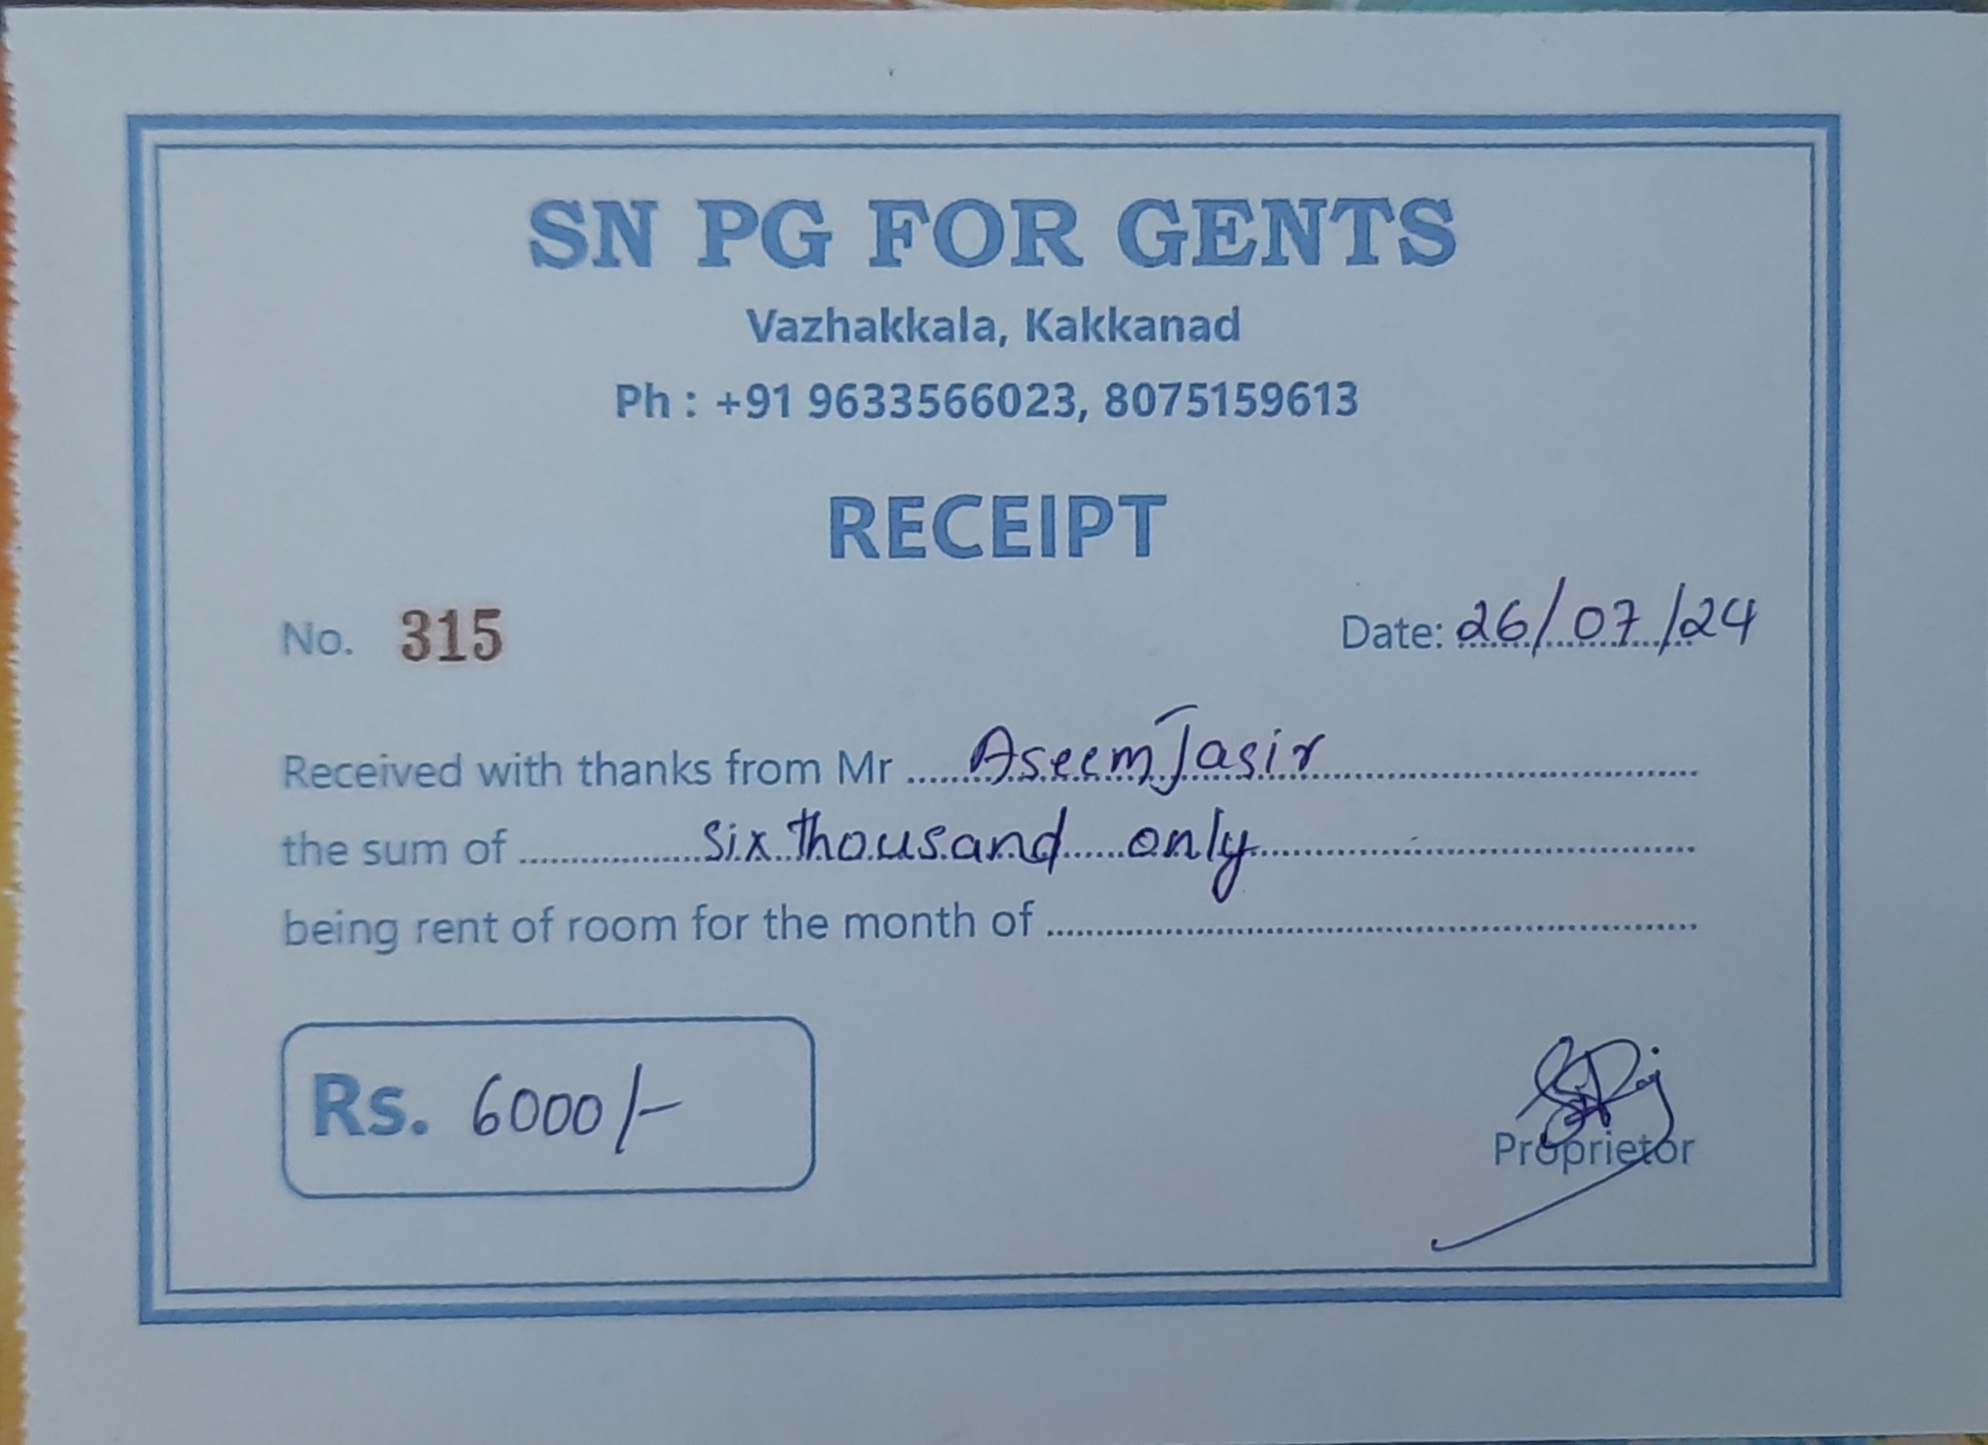 SN PG FOR GENTS
Vazhakkala, Kakkanad
Ph : +91 9633566023, 8075159613
RECEIPT
No. 315 Date: 26/07/24
Received with thanks from Mr Aseem Jasir
the sum of six thousand only
being rent of room for the month of
Rs. 6000/-
Proprietor